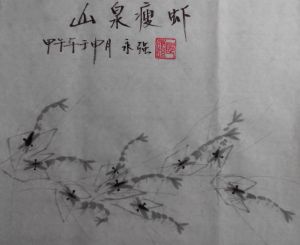 山泉瘦虾
甲午年于中月 永强